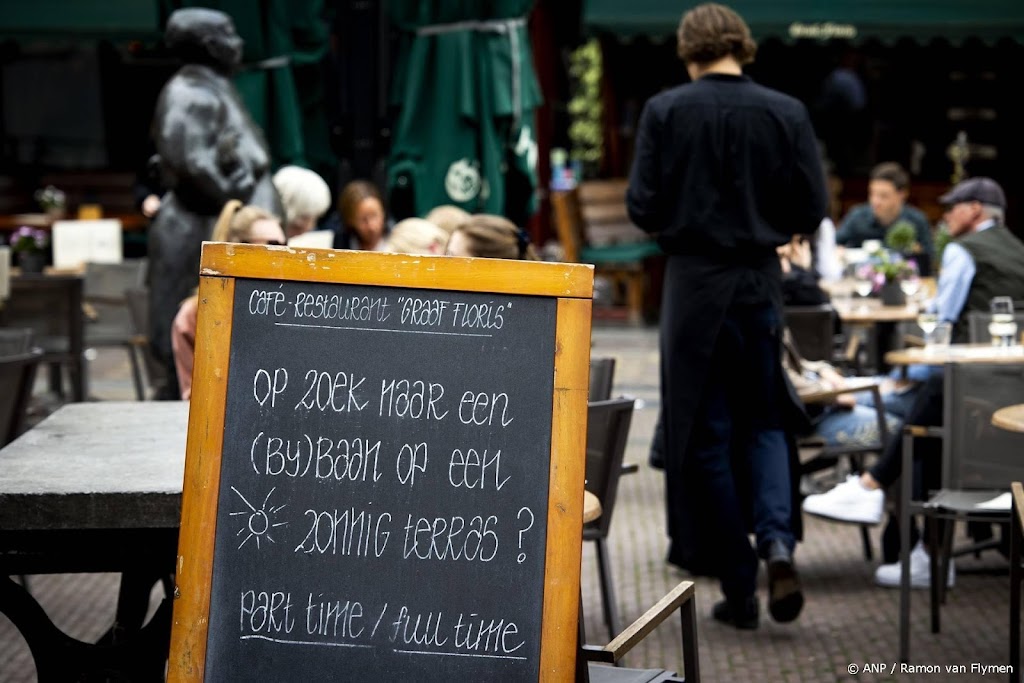 Café-Restaurant "Graaf Floris"
Op zoek naar een
(by)baan op een
zonnig terras?
part time / full time
© ANP / Ramon van Flymen